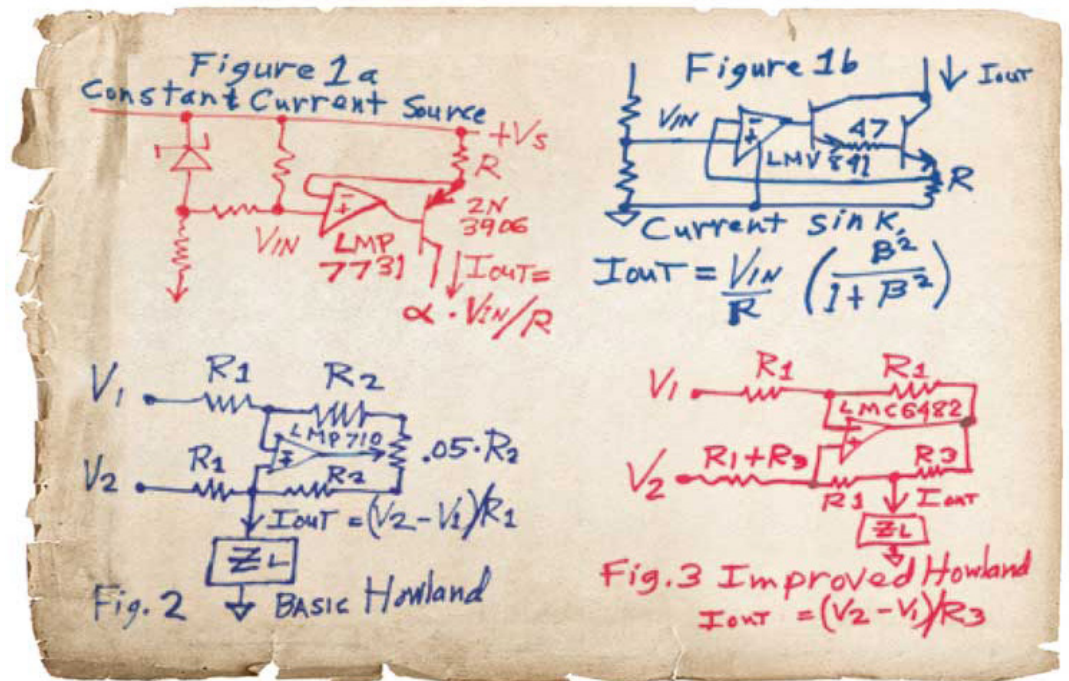 Figure 1a
Constant Current Source
+Vs
R
2N
3906
VIN
LMP
7731
IOUT=
α·VIN/R
Figure 1b
IOUT
VIN
47
LMV 841
R
Current sink,
IOUT = VIN/R (β²/1+β²)
V1
R1
R2
LMP710
.05·R2
V2
R1
R2
IOUT = (V2-V1)/R1
ZL
Fig. 2 BASIC Howland
V1
R1
R1
LMC6482
V2
R1+R3
R3
R1
IOUT
ZL
Fig.3 Improved Howland
IOUT = (V2-V1)/R3